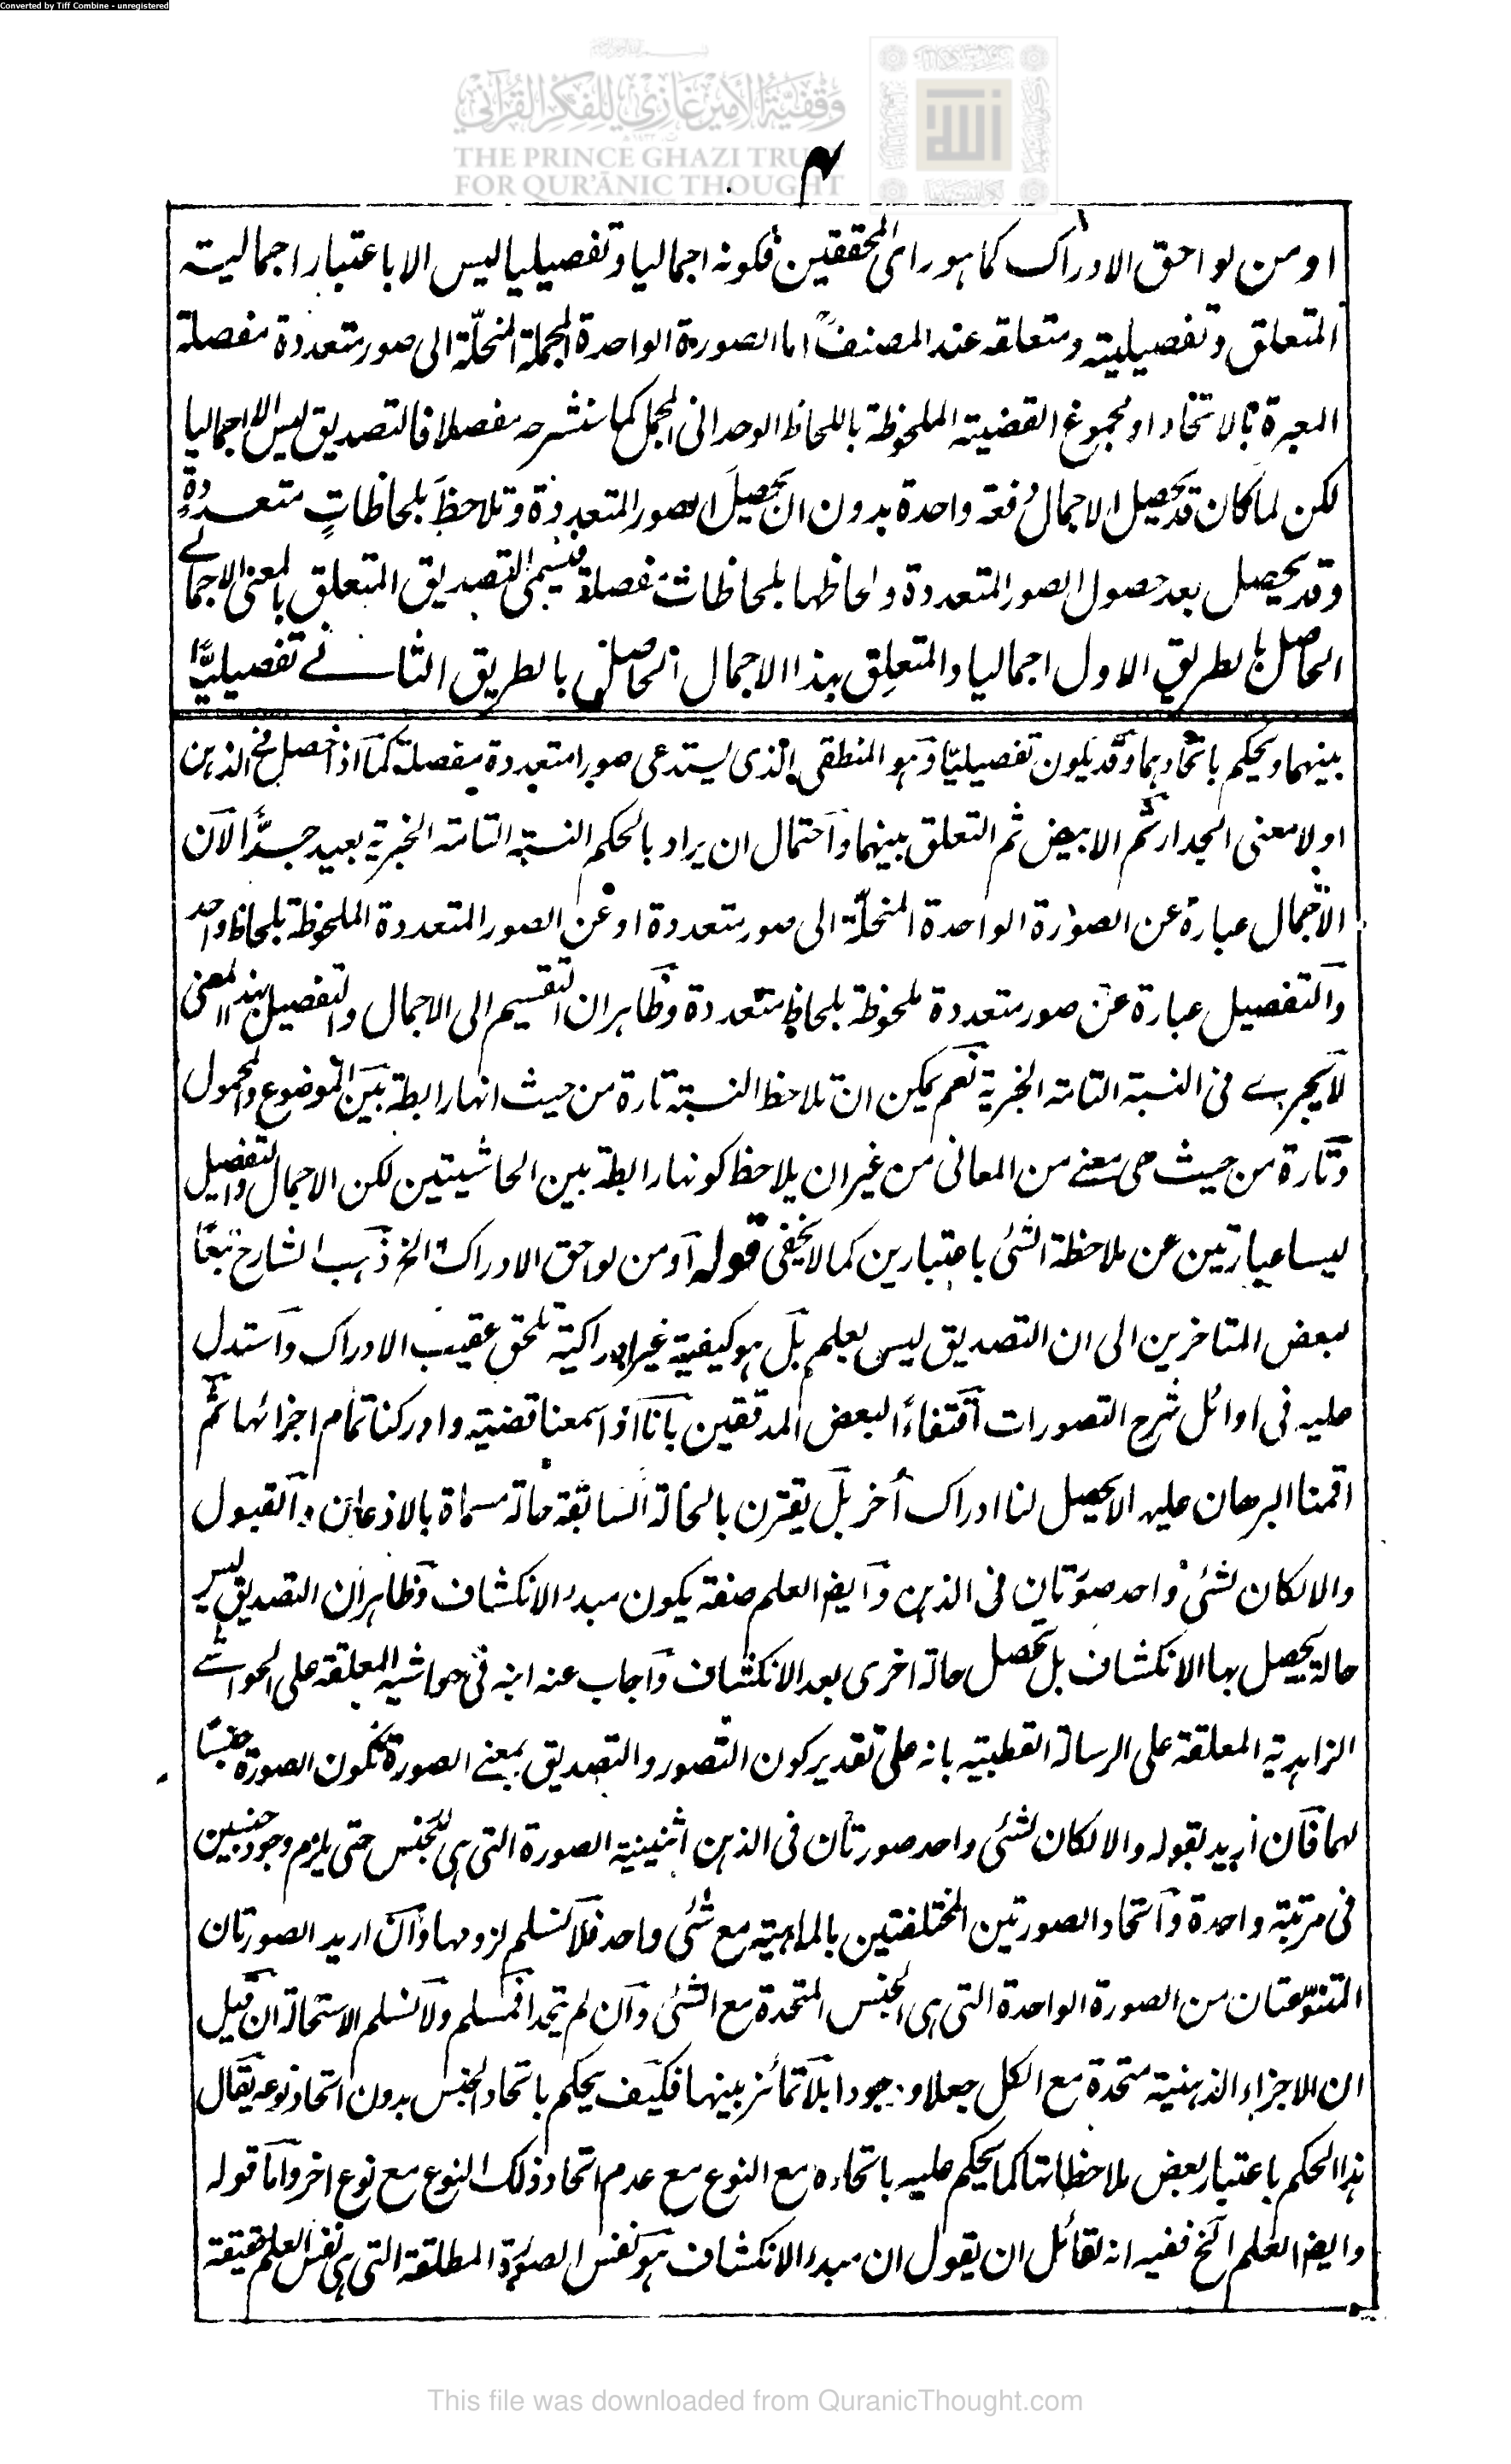 Converted by Tiff Combine - unregistered
وقفية الأمير غازي للفكر القرآني
THE PRINCE GHAZI TRUST
FOR QUR'ĀNIC THOUGHT
او من لواحق الادراك كما هو راى المحققين فكونه اجماليا وتفصيليا ليس الا باعتبار اجمالية
المتعلق وتفصيليته ومتعلقه عند المصنف اما الصورة الواحدة المجملة المنحلّة الى صور متعددة مفصلة
المعبرة بالاتحاد او مجموع القضية الملحوظة باللحاظ الوحدانى المجمل كما سنشرحه مفصلا فالتصديق ليس الا اجماليا
لكن لما كان قد يحصل الاجمال دفعة واحدة بدون ان تحصل الصور المتعددة وتلاحظ بلحاظاتٍ متعددةٍ
وقد يحصل بعد حصول الصور المتعددة ولحاظها بلحاظات مفصلة فيسمى التصديق المتعلق بالمعنى الاجمالے
الحاصل بالطريق الاول اجماليا والمتعلق بهذا الاجمال الحاصل بالطريق الثانے تفصيليًّا
بينهما ويحكم باتحادهما وقد يكون تفصيليّا وهو المنطقى الذى يستدعى صورا متعددة مفصلة كما اذا حصل فى الذهن
اولا معنى الجدار ثم الابيض ثم التعلق بينهما واحتمال ان يراد بالحكم النسبة التامة الخبرية بعيد جدًّا لان
الاجمال عبارة عن الصورة الواحدة المنحلّة الى صور متعددة او عن الصور المتعددة الملحوظة بلحاظ واحد
والتفصيل عبارة عن صور متعددة ملحوظة بلحاظ متعددة وظاهر ان التقسيم الى الاجمال والتفصيل بهذا المعنى
لا يجرے فى النسبة التامة الخبرية نعم يمكن ان تلاحظ النسبة تارة من حيث انها رابطة بين الموضوع والمحمول
وتارة من حيث هى معنے من المعانى من غير ان يلاحظ كونها رابطة بين الحاشيتين لكن الاجمال والتفصيل
ليسا عبارتين عن ملاحظة الشئ باعتبارين كما لا يخفى قوله او من لواحق الادراك الخ ذهب الشارح تبعًا
لبعض المتاخرين الى ان التصديق ليس بعلم بل هو كيفية غير ادراكية تلحق عقيب الادراك واستدل
عليه فى اوائل شرح التصورات اقتفاءً لبعض المدققين بانا اذا سمعنا قضية وادركنا تمام اجزائها ثم
اقمنا البرهان عليه لا يحصل لنا ادراك اخر بل يقترن بالحالة السابقة حالة مسماة بالاذعان والقبول
والا لكان لشئ واحد صورتان فى الذهن وايضا العلم صفة يكون مبدء الانكشاف وظاهر ان التصديق ليس
حالة يحصل بها الانكشاف بل تحصل حالة اخرى بعد الانكشاف واجاب عنه ابنه فى حواشيه المعلقة على الحواشے
الزاهدية المعلقة على الرسالة القطبية بانه على تقدير كون التصور والتصديق بمعنے الصورة تكون الصورة جنسًا
لهما فان اريد بقوله والا لكان لشئ واحد صورتان فى الذهن اثنينية الصورة التى هى الجنس حتى يلزم وجود جنسين
فى مرتبة واحدة واتحاد الصورتين المختلفتين بالماهية مع شئ واحد فلا نسلم لزومها وان اريد الصورتان
المتنوعتان من الصورة الواحدة التى هى الجنس المتحدة مع الشئ وان لم يتحدا فمسلم ولا نسلم الاستحالة ان قيل
ان الاجزاء الذهنية متحدة مع الكل جعلا ووجودا بلا تمائز بينها فكيف يحكم باتحاد الجنس بدون اتحاد نوعه يقال
هذا الحكم باعتبار بعض ملاحظاتها كما يحكم عليه باتحاده مع النوع مع عدم اتحاد ذلك النوع مع نوع اخر واما قوله
وايضا العلم الخ ففيه انه لقائل ان يقول ان مبدء الانكشاف هو نفس الصورة المطلقة التى هى نفس العلم حقيقة
This file was downloaded from QuranicThought.com